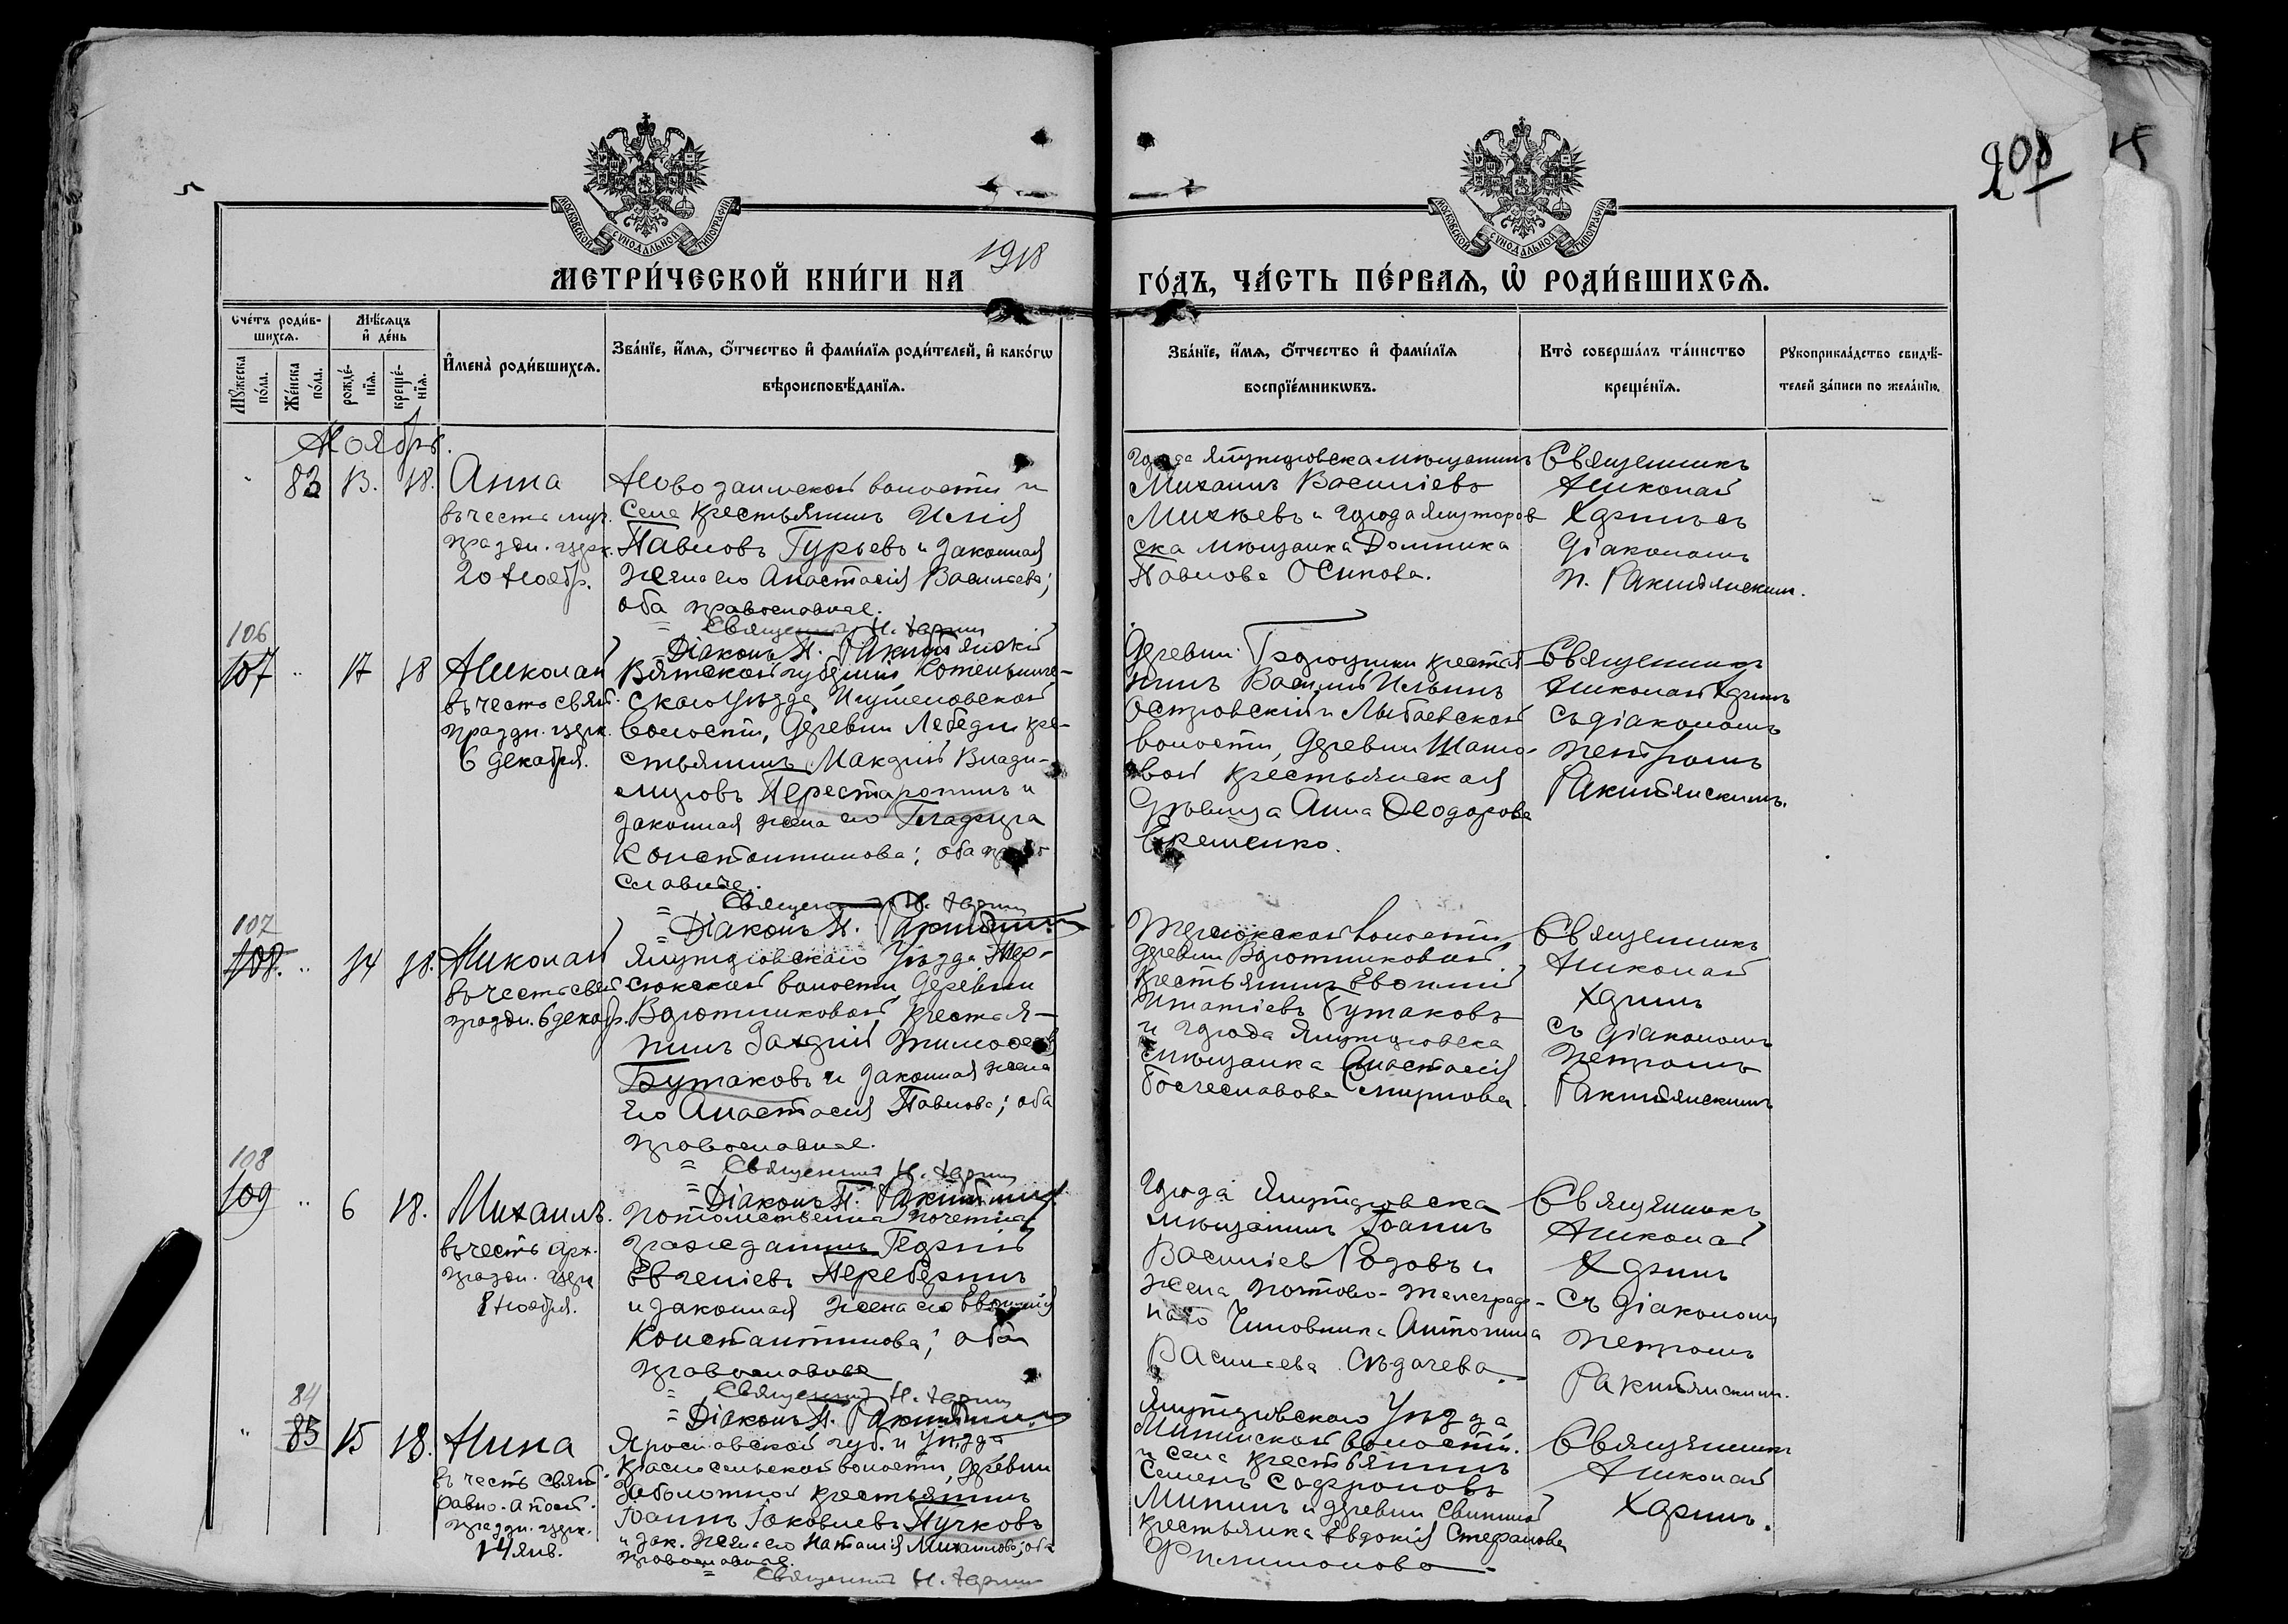 208
15
МОСКОВСКОЙ СѴНОДАЛЬНОЙ ТИПОГРАФІИ
МОСКОВСКОЙ СѴНОДАЛЬНОЙ ТИПОГРАФІИ
МЕТРИ́ЧЕСКОЙ КНИ́ГИ НА 1918 ГО́ДЪ, ЧА́СТЬ ПЕ́РВАѦ, Ѡ҆ РОДИ́ВШИХСѦ.
Сче́тъ роди́в-
шихсѧ.
Мѣ́сѧцъ
и҆ де́нь
Мꙋ́жеска
по́ла.
Же́нска
по́ла.
рожде́-
нїѧ.
креще́-
нїѧ.
И҆мена̀ роди́вшихсѧ.
Зва́нїе, и҆́мѧ, ѻ҆́тчество и҆ фами́лїѧ роди́телей, и҆ како́гѡ
вѣроисповѣ́данїѧ.
Зва́нїе, и҆́мѧ, ѻ҆́тчество и҆ фами́лїѧ
воспрїе́мникѡвъ.
Кто̀ соверша́лъ та́инство
креще́нїѧ.
Рꙋкоприкла́дство свидѣ́-
телей за́писи по жела́нїю.
Ноябрь.
83 13. 18. Анна
въ честь муч.
праздн. церк.
20 Ноябр.
Новозаимской волости и
села крестьянинъ Илія
Павловъ Гурьевъ и законная
жена его Анастасія Васильева;
оба православные.
= Священникъ Н. Харин
= Діаконъ П. Ракитянскій
города Ялуторовска мѣщанинъ
Михаилъ Василіевъ
Михѣевъ и города Ялуторов
ска мѣщанка Домника
Павлова Осипова.
Священникъ
Николай
Харинъ съ
діакономъ
П. Ракитянским.
106
107 " 17 18 Николай
въ честь свят.
праздн. церк.
6 декабря.
Вятской губерніи Котельниче-
скаго уѣзда
волости, деревни Лебеди кре-
стьянинъ Макарій Влади-
міровъ Перестаронинъ и
законная жена его Глафира
Константинова; оба право
славные.
= Священникъ Н. Харин
= Діаконъ П.
Деревни крестья-
нинъ Василій Ильинъ
Островскій и Лыбаевской
волости, деревни Шато-
вой крестьянская
дѣвица Анна Ѳеодорова
Еременко.
Священникъ
Николай Харинъ
съ діакономъ
Петромъ
Ракитянскимъ.
107
108. " 14 18. Николай
въ честь свят
праздн. 6 декабр.
Ялуторовскаго уѣзда Тер-
сюкской волости деревни
Воротниковой крестья-
нинъ Захарій Тимоѳеевъ
Бутаковъ и законная жена
его Анастасія Павлова; оба
православные.
= Священникъ Н. Харин
= Діаконъ П.
Терсюкской волости
деревни Воротниковой
крестьянинъ Евѳимій
Игнатіевъ Бутаковъ
и города Ялуторовска
мѣщанка Анастасія
Смирнова.
Священникъ
Николай
Харинъ
съ діакономъ
Петромъ
Ракитянскимъ
108
109 " 6 18. Михаилъ.
въ честь Арх.
праздн. церк
8 Ноября.
Потомственный почетный
гражданинъ Георгій
Евгеніевъ Переберинъ
и законная жена его Евѳимія
Константинова; оба
православные
= Священникъ Н. Харин
= Діаконъ П.
Города Ялуторовска
мѣщанинъ Іоаннъ
Василіев Родовъ и
жена Почтово-телеграф-
наго Чиновника Антонина
Васильева Сѣдачева.
Священникъ
Николай
Харинъ
съ діакономъ
Петромъ
Ракитянским.
84
" 85 15 18. Нина
въ честь Свят
равно-апост.
праздн. церк.
14 янв.
Ярославской губ. и уѣзда
Красносельской волости, деревни
Заболотной крестьянинъ
Іоаннъ Іаковлевъ Пучковъ
и зак. жена его Наталія Михаилова; оба
православные.
= Священникъ Н. Харин
Ялуторовскаго Уѣзда
Мининской волости
и села крестьянинъ
Семенъ Софроновъ
Мининъ и деревни Свининой
крестьянка Евдокія Стефанова
Филимонова.
Священникъ
Николай
Харинъ.